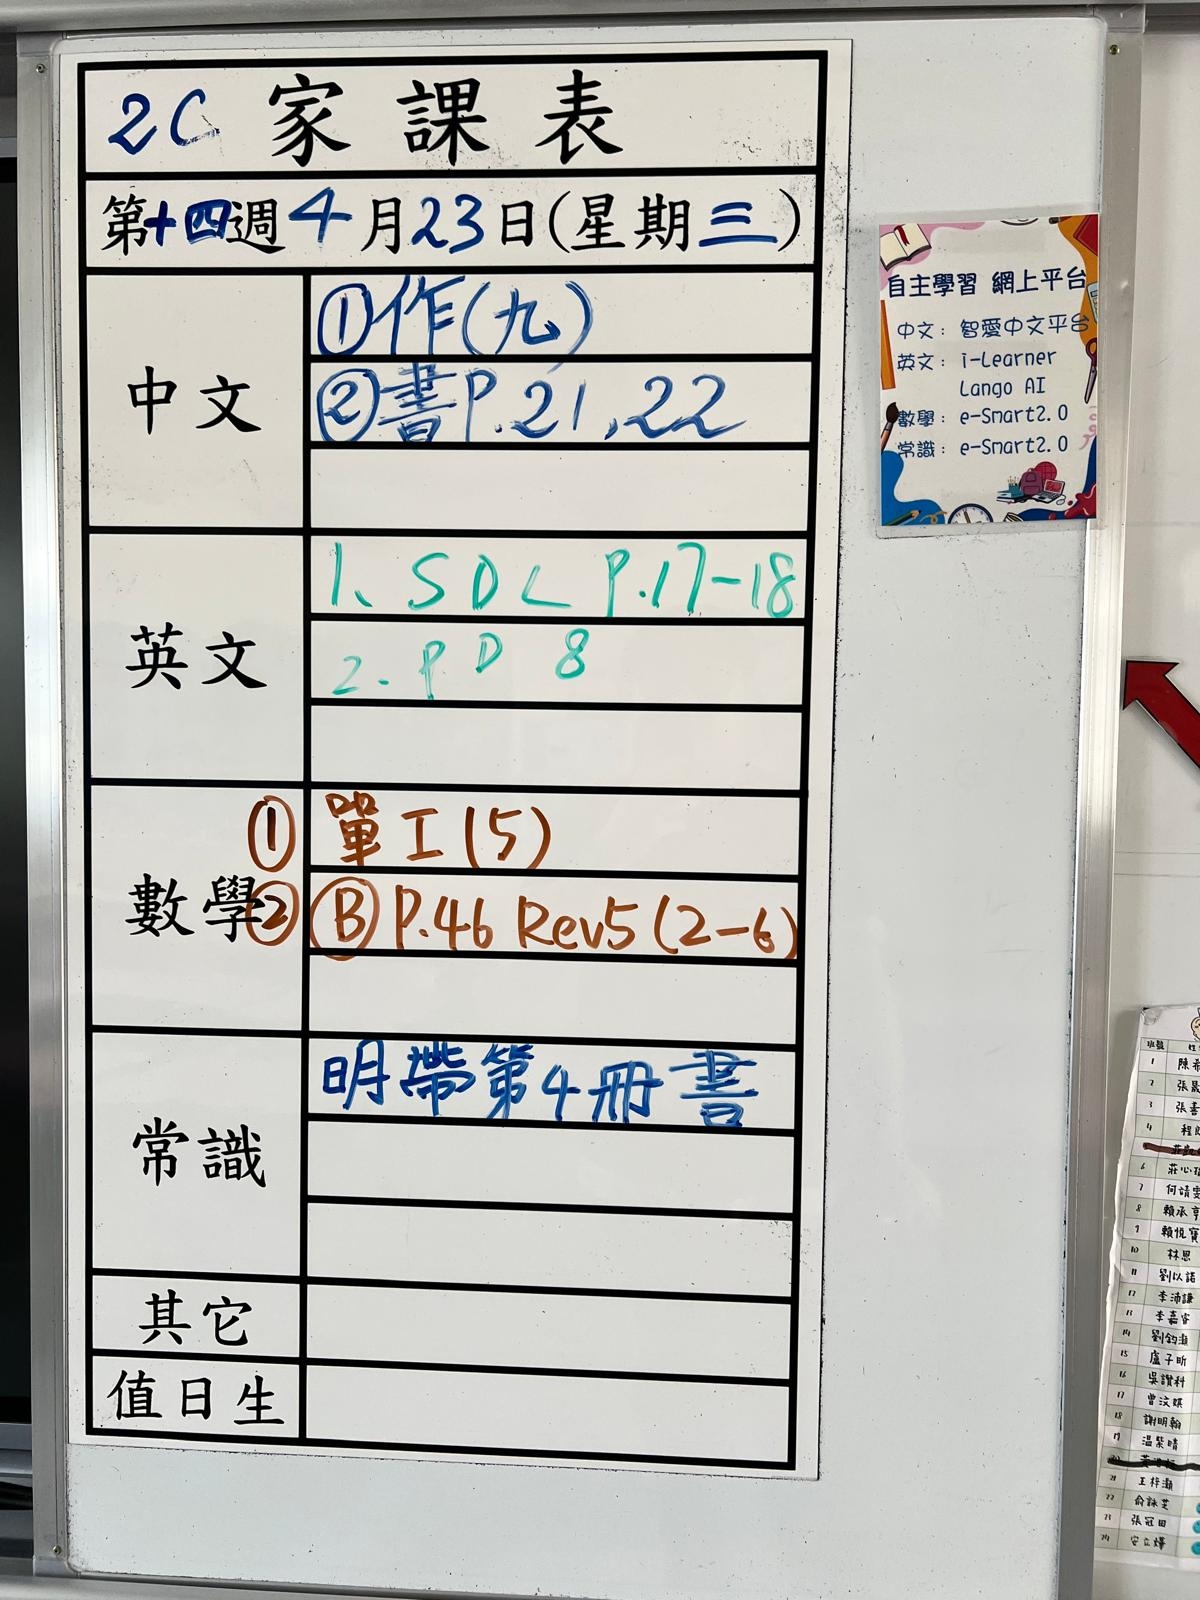 2C 家課表
第十四週4月23日(星期三)
中文
①作(九)
②書P.21,22
英文
1、SDL P.17-18
2. PD 8
數學
① 單工(5)
② Ⓑ P.46 Rev5(2-6)
常識
明帶第4冊書
其它
值日生
自主學習 網上平台
中文: 智愛中文平台
英文: i-Learner
Lango AI
數學: e-Smart2.0
常識: e-Smart2.0
班號
1 陳
2 張
3 張善
4 程
6 莊心
7 何靖雯
8 賴承亨
9 賴悅寶
10 林思
11 劉以諾
12 李沛謙
13 李嘉睿
14 劉鈞灝
15 盧子昕
16 吳讚科
17 曾汶
18 謝明翰
19 溫紫晴
21 王梓灝
22 俞詠芝
23 張冠田
24 安立